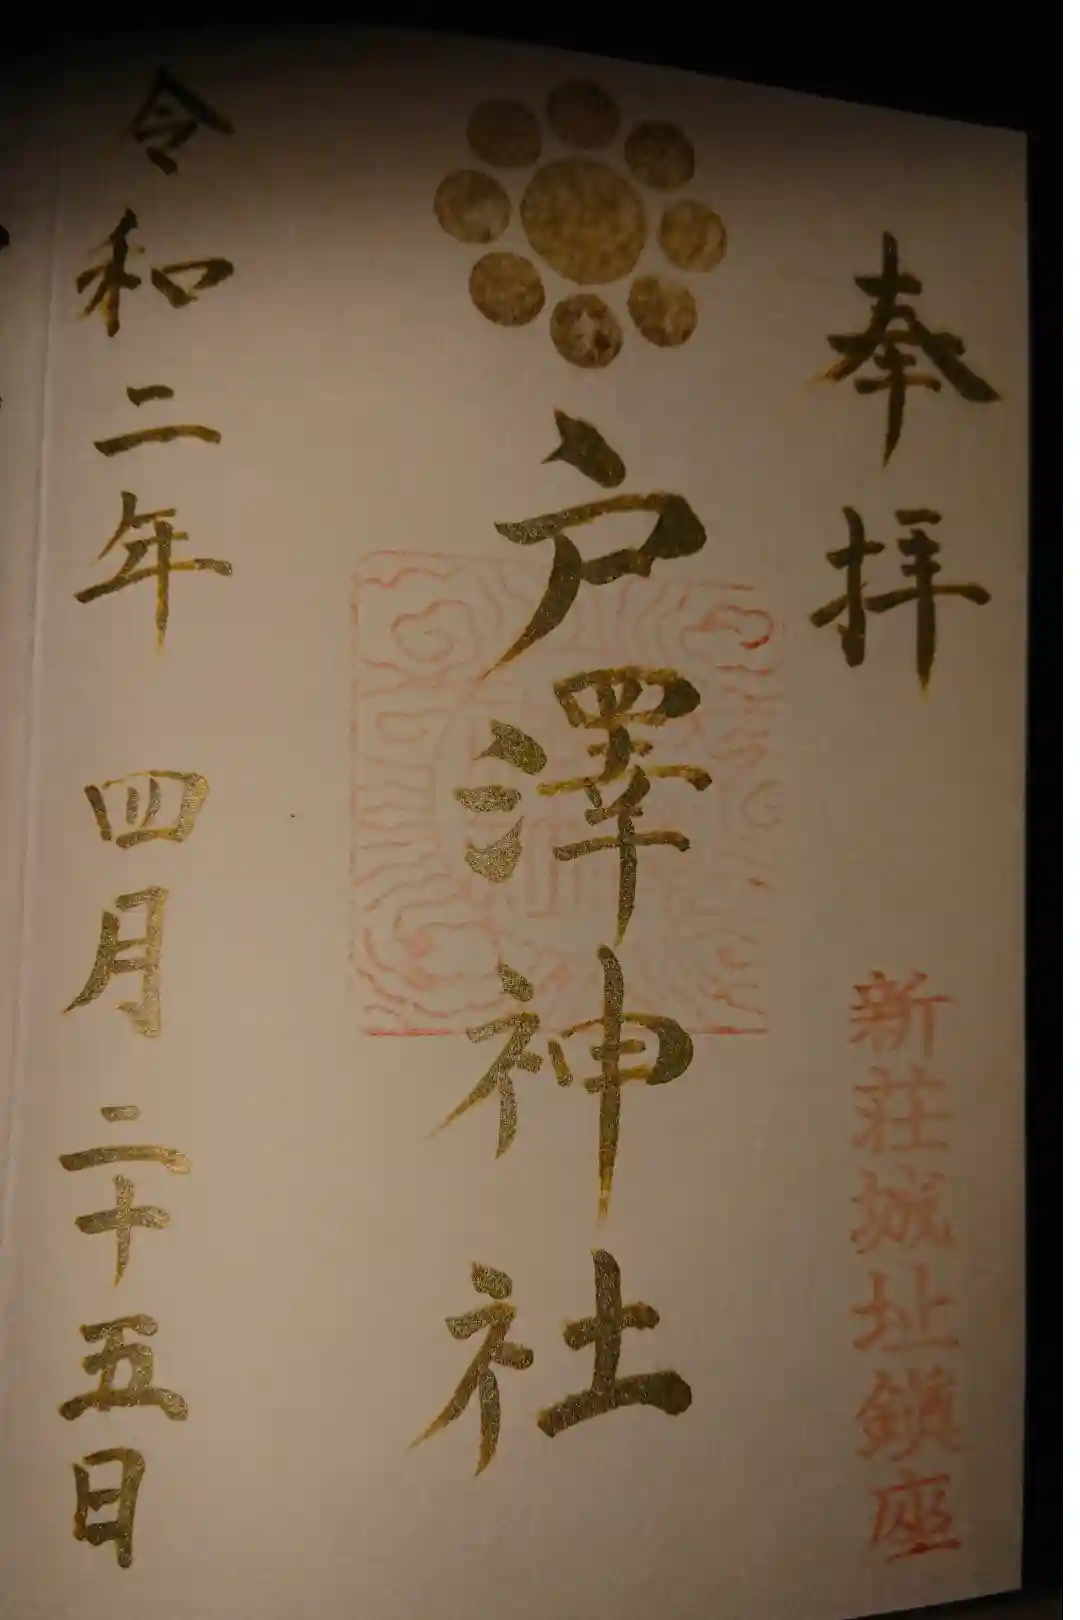 奉拝
新荘城址鎮座
戸澤神社
令和二年 四月 二十五日